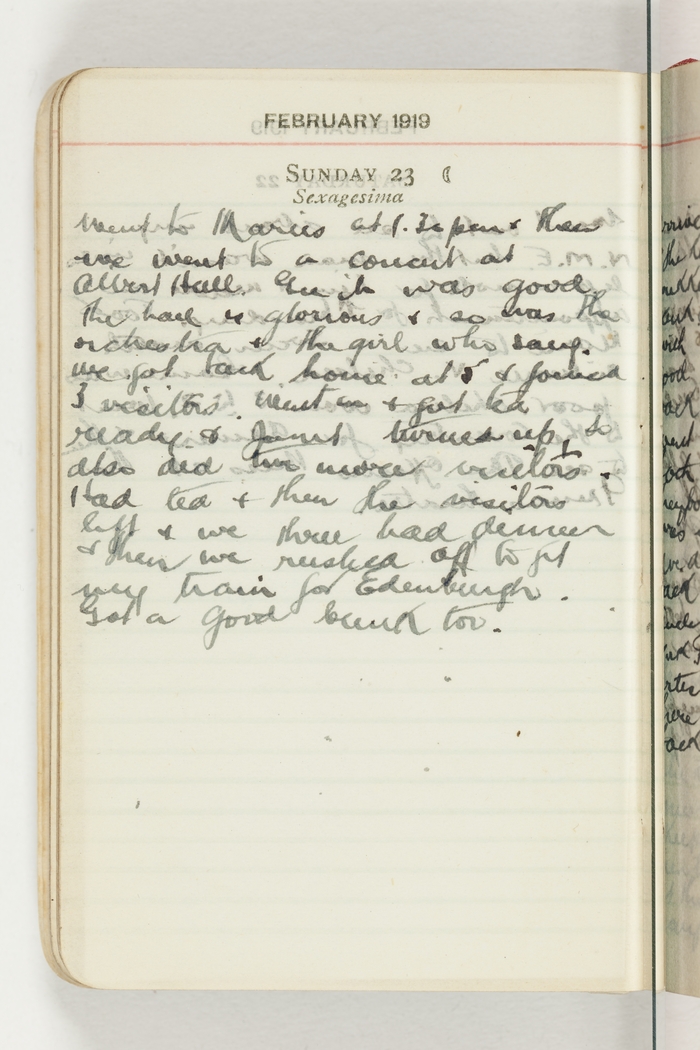 FEBRUARY 1919
SUNDAY 23
Sexagesima
Went to Maries at 1.30pm & then
we went to a concert at
Albert Hall. Gee it was good.
The hall is glorious & so was the
orchestra & the girl who sang.
We got back home at 5 & joined
3 visitors. Went in & got tea
ready & Janet turned up, so
also did two more visitors.
Had tea & then the visitors
left & we three had dinner
& then we rushed off to get
my train for Edenburgh.
Got a good bunk too.